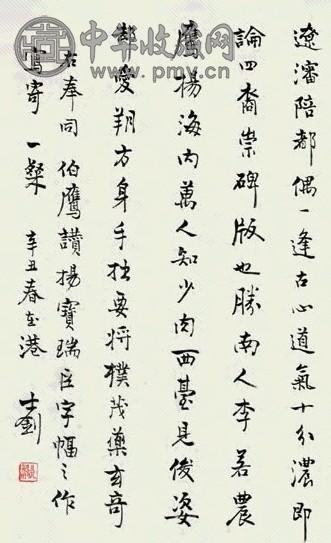 遼瀋陪都偶一逢古心道氣十分濃即
論四裔崇碑版也勝南人李若農
鷹揚海內萬人知少肉西臺見俊姿
都愛翔方身手独要将樸茂藥玄奇
右奉同伯鷹讚揚寶瑞臣字幅之作
寫寄一粲 辛丑春在港
士釗
中华收藏网
www.pmw.cn